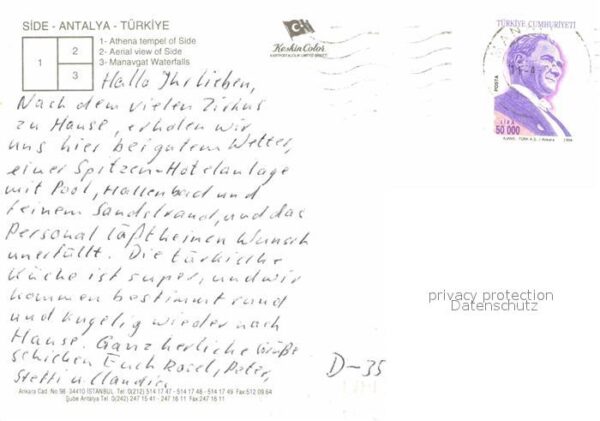 SIDE - ANTALYA - TÜRKİYE
1
2
3
1- Athena tempel of Side
2- Aerial view of Side
3- Manavgat Waterfalls
Keskin Color
TÜRKİYE CUMHURİYETİ
POSTA
LİRA
50 000
Hallo Ihr Lieben,
Nach dem vielen Zirkus
zu Hause, erholen wir
uns hier bei gutem Wetter,
einer Spitzen-Hotelanlage
mit Pool, Hallenbad und
feinem Sandstrand, und das
Personal läßt keinen Wunsch
unerfüllt. Die türkische
Küche ist super, und wir
kommen bestimmt rund
und kugelig wieder nach
Hause. Ganz herliche Grüße
schicken Euch Peter,
Steffi u Claudia
D-35
privacy protection
Datenschutz
Ankara Cad. No 98 34410 İSTANBUL Tel: 0(212) 514 17 47 - 514 17 48 - 514 17 49 Fax: 512 09 64
Şube Antalya Tel: 0(242) 247 15 41 - 247 16 11 Fax 247 16 11